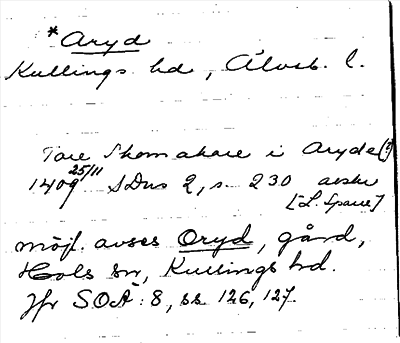 *Aryd
Kullings hd, Älvsb. l.
Tore Skomakare i Aryde(?)
1409 25/11 SDns 2, s. 230 avskr
[L. Sparre]
möjl. avses Oryd, gård,
Hols sn, Kullings hd.
Jfr SOÄ: 8, ss 126, 127.